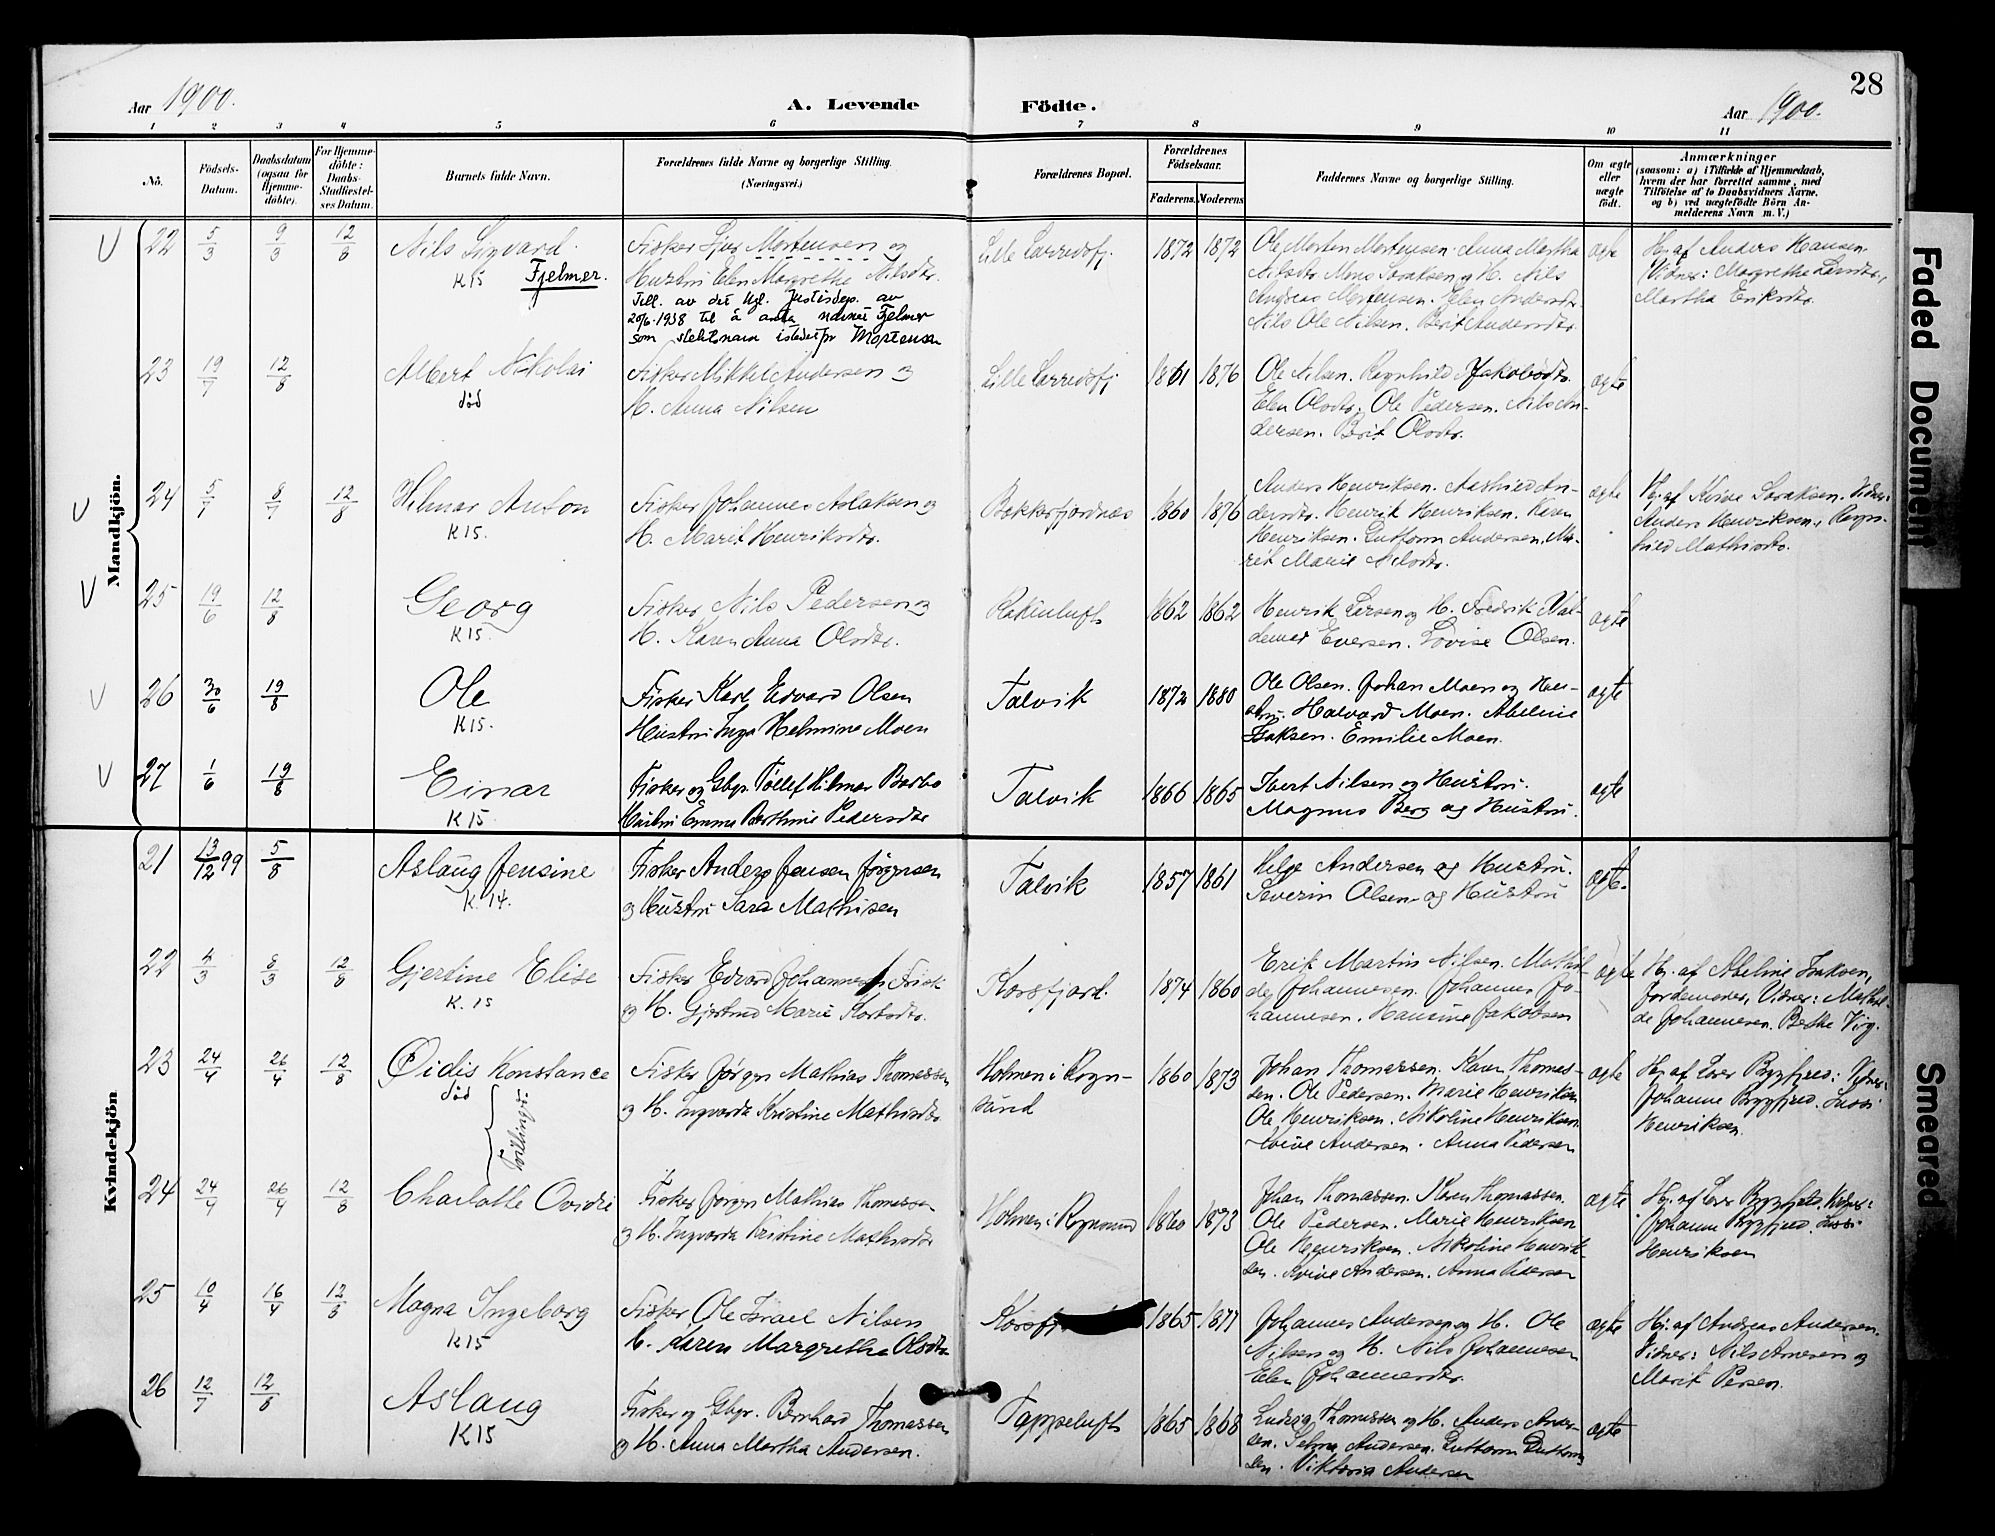 28
Aar 1900.
A. Levende Födte.
Aar 1900.
1 2 3 4 5 6 7 8 9 10 11
No.
Födsels-Datum.
Daabsdatum (ogsaa for Hjemmedöbte).
For Hjemmedöbte: Daabs-Stadfæstelses Datum.
Barnets fulde Navn.
Forældrenes fulde Navne og borgerlige Stilling. (Næringsvei.)
Forældrenes Bopæl.
Forældrenes Födselsaar.
Faderens. Moderens.
Faddernes Navne og borgerlig Stilling.
Om ægte eller uægte födt.
Anmærkninger
(saasom: a) i Tilfælde af Hjemmedaab, hvem der har forrettet samme, med Tilföielse af to Daabsvidners Navne. og b) ved uægtefödte Börn Anmelderens Navn m. V.)
Mandkjön.
22 5/3 9/3 12/8 Nils Sigvard.
K15 Fjelmer.
Fisker Mortensen og
Hustru Elen Margrethe Nilsdtr.
Till. av det kgl. Justisdep. av
20/6-1938 til å anta navnet Fjelmer
som slektsnavn istedetfor Mortensen
Lille Lerredsfj. 1872 1872
Ole Morten Mortensen. Anna Martha
Nilsdtr. H. Nils
Andreas Mortensen. Elen Andersdtr.
Nils Ole Nilsen. Berit Andersdtr.
ægte
Hj. af Anders Hansen.
Vidner: Margrethe
Martha Eriksdtr.
23 19/7 12/8 Albert Nikolai
død
Fisker Mikkel Andersen og
H. Anna Nilsen
Lille Lerredsfj 1861 1876
Ole Nilsen. Ragnhild Jakobsdtr.
Elen Olsdtr. Ole Pedersen. Nils An-
dersen. Berit Olsdtr.
ægte
24 5/7 8/7 12/8 Hilmar Anton
K15.
Fisker Johannes Aslaksen og
H. Marit Henriksdtr.
Bekkerfjordnæs 1860 1876
Anders Henriksen. An-
dersdtr. Henrik Henriksen. Karen
Henriksen. Guttorm Andersen. Ma-
rit Marie Nilsdtr.
ægte
Hj. af Kvive Vidner:
Anders Henriksen, Ragn-
hild Mathisdtr.
25 19/6 12/8 Georg
K15.
Fisker Nils Pedersen og
H. Karen Anna Olsdtr.
1862 1862
Henrik Larsen og H. Fredrik Val-
demar Eversen. Lovise Olsen.
ægte
26 30/6 19/8 Ole
K15.
Fisker Karl Edvard Olsen
Hustru Inga Helmine Moen
Talvik 1872 1880
Ole Olsen. Johan Moen og Hu-
stru. Halvard Moen. Abeline
Isaksen. Emilie Moen.
ægte
27 1/6 19/8 Einar
K15.
Fisker og Gbr. Tollef Hilmar Barbo
Hustru Emma Berthine Pedersdtr
Talvik 1866 1865
Ivert Nilsen og Hustru.
Magnus Berg og Hustru.
ægte
Kvindekjön
21 13/12 99 5/8 Aslaug Jensine
K.14.
Fisker Anders Jensen Jørgensen
og Hustru Sara Mathisen
Talvik 1857 1861
Helge Andersen og Hustru.
Severin Olsen og Hustru
ægte.
22 4/3 8/3 12/8 Gjertine Elise
K.15
Fisker Edvard Johannes Frisk
og H. Gjertrud Marie
Korsfjord. 1874 1860
Erik Martin Nilsen. Mathil-
de Johannesen. Johannes Jo-
hannesen. Hansine Jakobsen
ægte
Hj. af Abeline Isaksen,
Jordemoder, Vidner: Mathil-
de Johannesen.
23 24/4 26/4 12/8 Øidis Konstance
død
Tvillinger.
Fisker Jørgen Mathias Thomassen
og H. Ingvarda Kristine Mathisdtr.
Holmen i Rogn-
sund
1860 1873
Johan Thomassen. Karen Thomas-
sen. Ole Pedersen. Marie Henriksen
Ole Henriksen. Nikoline Henriksen
Kvive Andersen. Anna Pedersen
ægte
Hj. af Vidner:
Johanne
Henriksen.
24 24/4 26/4 12/8 Charlotte Ovidie
Fisker Jørgen Mathias Thomassen
og H. Ingvarda Kristine Mathisdtr
Holmen i Rognsund 1860 1873
Johan Thomassen. Karen Thomassen.
Ole Pedersen. Marie Henriksen
Ole Henriksen. Nikoline Henrik-
sen. Kvive Andersen. Anna Pedersen
ægte
Hj. af Vidner:
Johanne
Henriksen
25 10/4 16/4 12/8 Magna Ingeborg
K15
Fisker Ole Israel Nilsen
H. Karen Margrethe Olsdtr
1865 1877
Johannes Andersen og H. Ole
Nilsen og H. Nils Johannesen
Elen Johannesdtr.
ægte
Hj. af Andreas Andersen.
Vidner: Nils Arnesen og
Marit Persen.
26 12/7 12/8 Aslaug
K15
Fisker og Gbr. Bernhard Thomassen
og H. Anna Martha Andersen.
Tappeluft 1865 1868
Ludvig Thomassen og H. Anders Ander-
sen. Selma Andersen. Guttorm Guttorm-
sen. Viktoria Andersen
ægte
Faded Document
Smeared